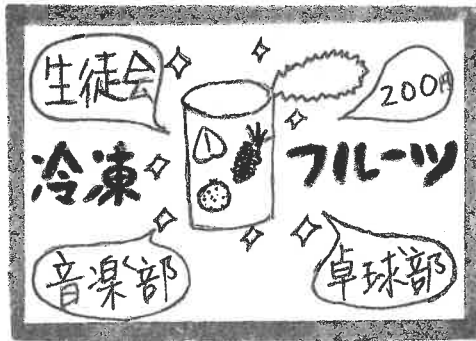 生徒会
200円
冷凍
フルーツ
音楽部
卓球部